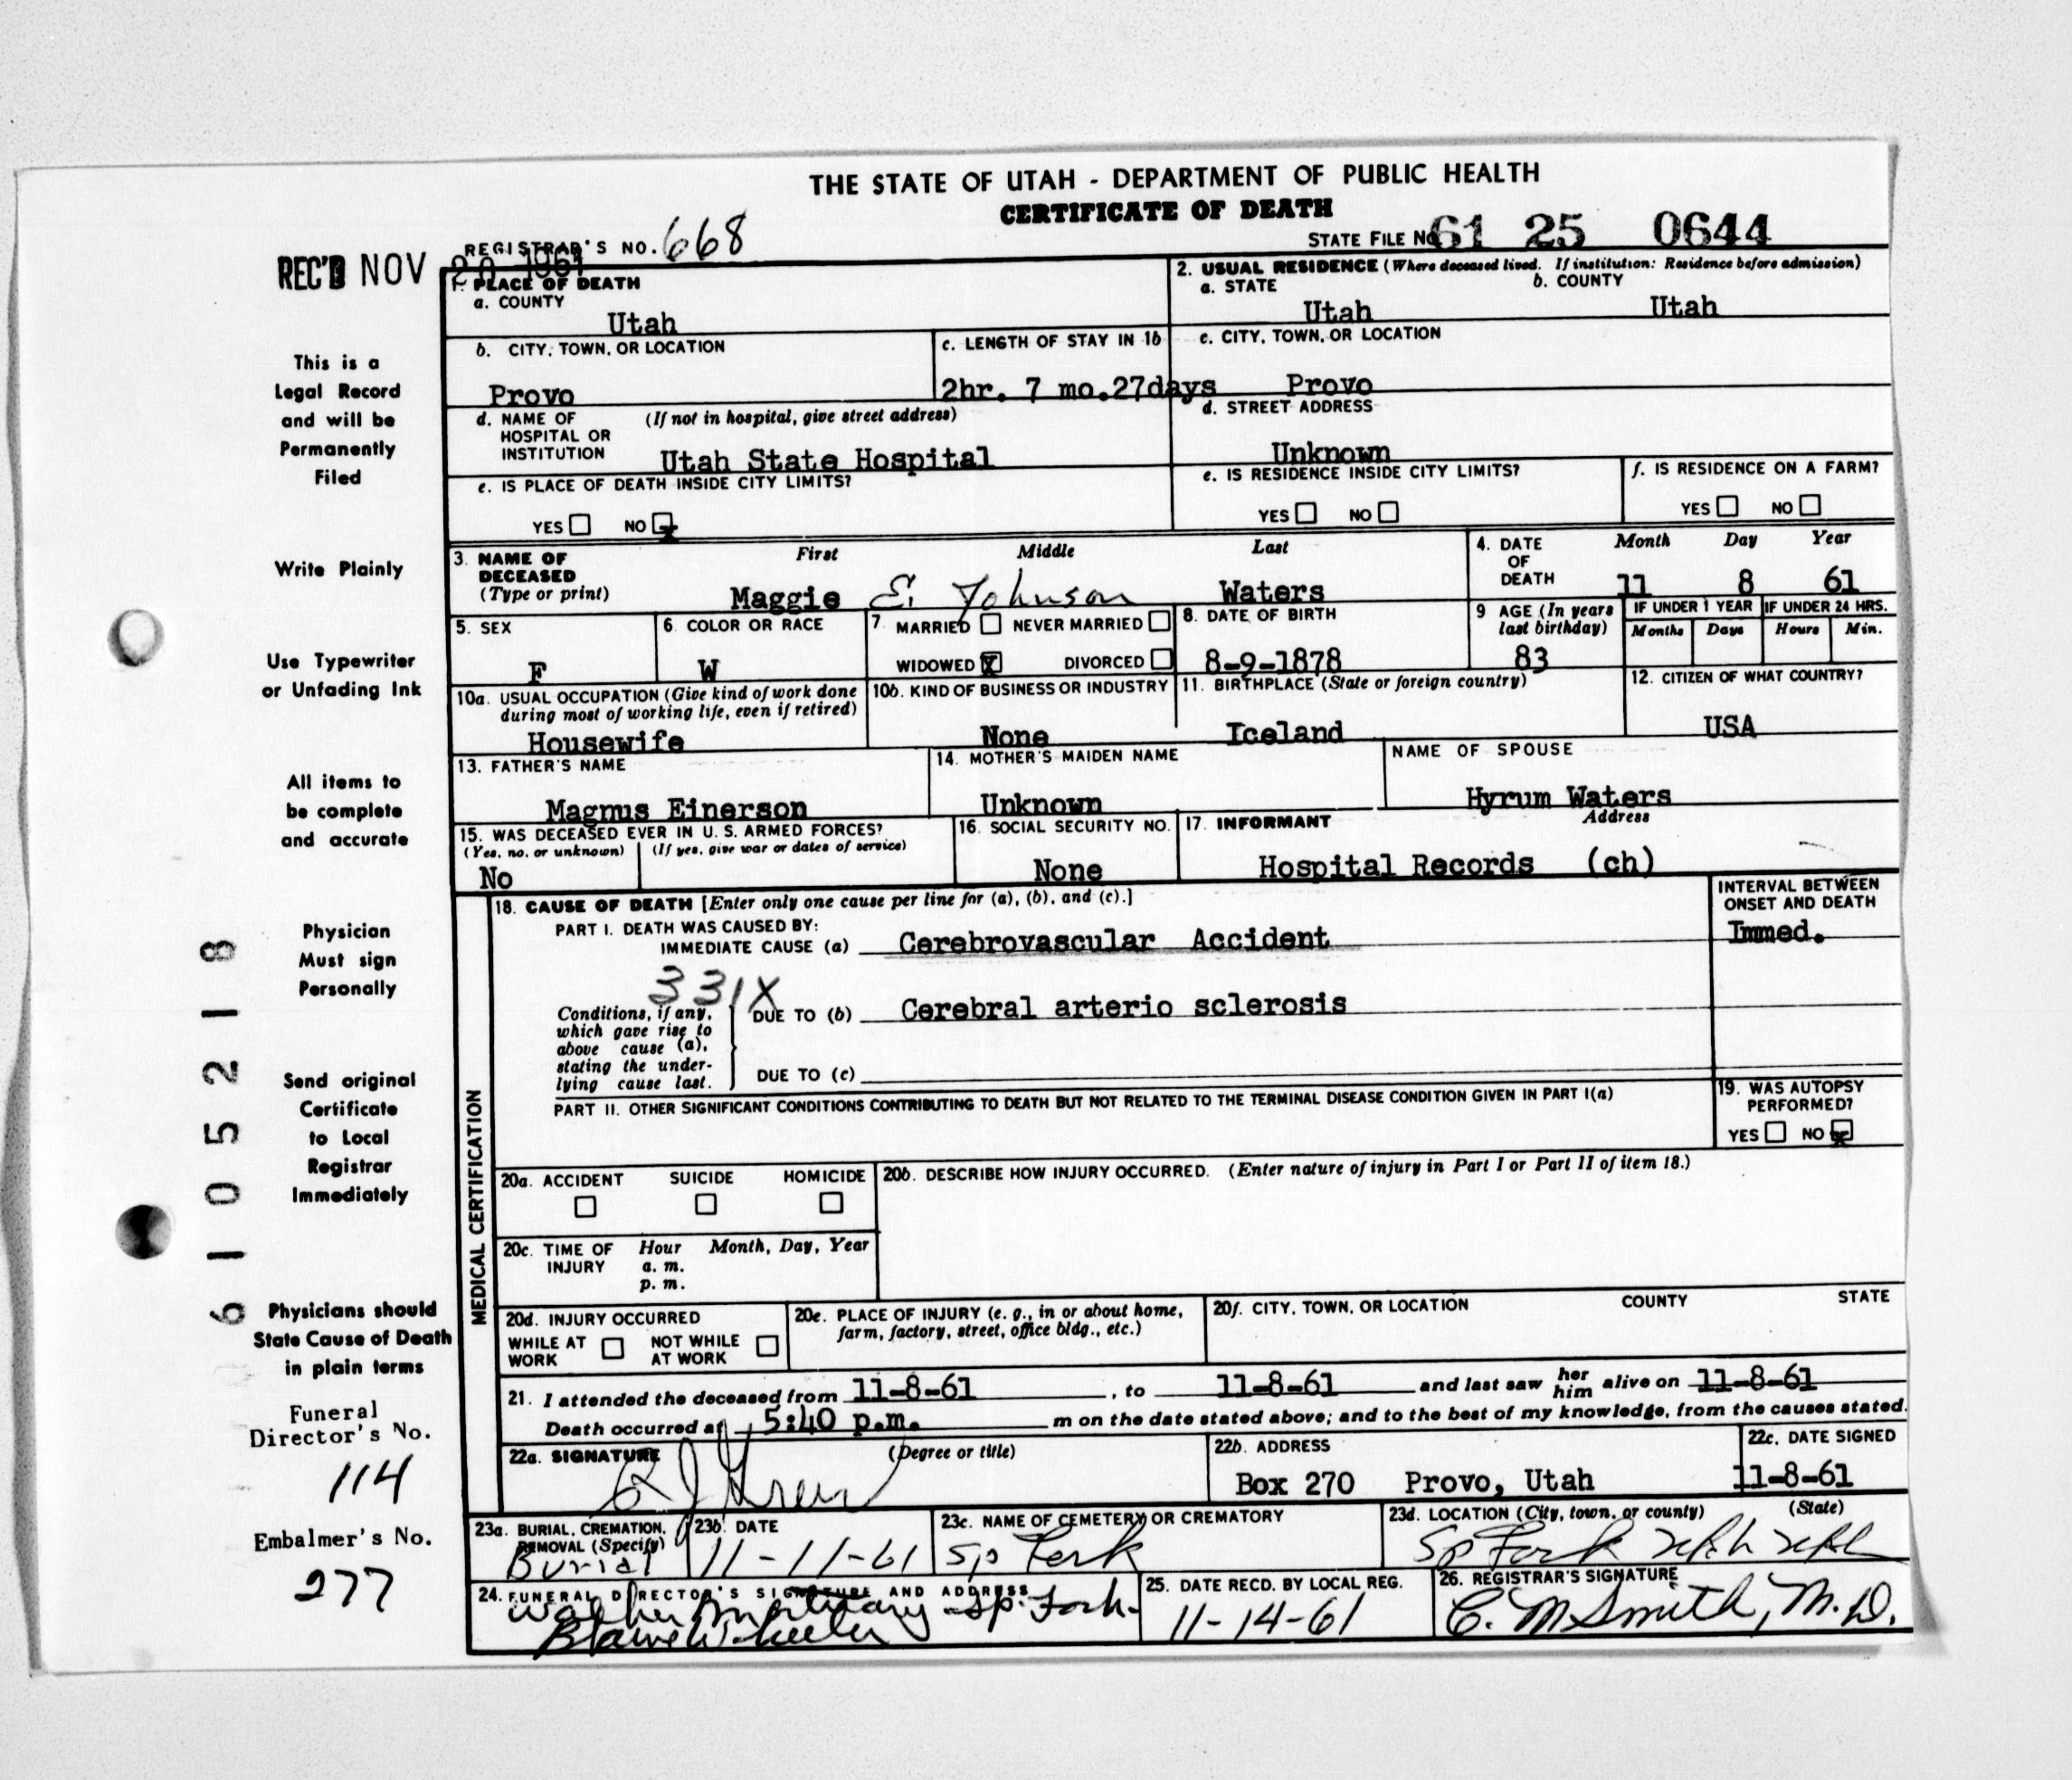 THE STATE OF UTAH - DEPARTMENT OF PUBLIC HEALTH
CERTIFICATE OF DEATH
REGISTRAR'S NO. 668
STATE FILE NO. 61 25 0644
REC'D NOV 20 1961
1. PLACE OF DEATH
a. COUNTY
Utah
2. USUAL RESIDENCE (Where deceased lived. If institution: Residence before admission)
a. STATE
b. COUNTY
Utah
Utah
b. CITY, TOWN, OR LOCATION
Provo
c. LENGTH OF STAY IN 1b
2hr. 7 mo.27days
c. CITY, TOWN, OR LOCATION
Provo
d. NAME OF HOSPITAL OR INSTITUTION
(If not in hospital, give street address)
Utah State Hospital
d. STREET ADDRESS
Unknown
e. IS PLACE OF DEATH INSIDE CITY LIMITS?
YES NO x
e. IS RESIDENCE INSIDE CITY LIMITS?
YES NO
f. IS RESIDENCE ON A FARM?
YES NO
3. NAME OF DECEASED
(Type or print)
First Middle Last
Maggie E. Johnson Waters
4. DATE OF DEATH
Month Day Year
11 8 61
5. SEX
F
6. COLOR OR RACE
W
7. MARRIED NEVER MARRIED
WIDOWED X DIVORCED
8. DATE OF BIRTH
8-9-1878
9 AGE (In years last birthday)
83
IF UNDER 1 YEAR
Months Days
IF UNDER 24 HRS.
Hours Min.
10a. USUAL OCCUPATION (Give kind of work done during most of working life, even if retired)
Housewife
10b. KIND OF BUSINESS OR INDUSTRY
None
11. BIRTHPLACE (State or foreign country)
Iceland
12. CITIZEN OF WHAT COUNTRY?
USA
13. FATHER'S NAME
Magnus Einerson
14. MOTHER'S MAIDEN NAME
Unknown
NAME OF SPOUSE
Hyrum Waters
15. WAS DECEASED EVER IN U. S. ARMED FORCES?
(Yes, no, or unknown) (If yes, give war or dates of service)
No
16. SOCIAL SECURITY NO.
None
17. INFORMANT
Address
Hospital Records (ch)
MEDICAL CERTIFICATION
18. CAUSE OF DEATH [Enter only one cause per line for (a), (b), and (c).]
INTERVAL BETWEEN ONSET AND DEATH
PART I. DEATH WAS CAUSED BY:
IMMEDIATE CAUSE (a) Cerebrovascular Accident
Immed.
331X
Conditions, if any, which gave rise to above cause (a), stating the underlying cause last.
DUE TO (b) Cerebral arterio sclerosis
DUE TO (c)
PART II. OTHER SIGNIFICANT CONDITIONS CONTRIBUTING TO DEATH BUT NOT RELATED TO THE TERMINAL DISEASE CONDITION GIVEN IN PART I(a)
19. WAS AUTOPSY PERFORMED?
YES NO x
20a. ACCIDENT SUICIDE HOMICIDE
20b. DESCRIBE HOW INJURY OCCURRED. (Enter nature of injury in Part I or Part II of item 18.)
20c. TIME OF INJURY
Hour Month, Day, Year
a. m.
p. m.
20d. INJURY OCCURRED
WHILE AT WORK NOT WHILE AT WORK
20e. PLACE OF INJURY (e. g., in or about home, farm, factory, street, office bldg., etc.)
20f. CITY, TOWN, OR LOCATION COUNTY STATE
21. I attended the deceased from 11-8-61, to 11-8-61 and last saw her him alive on 11-8-61
Death occurred at 5:40 p.m. m on the date stated above; and to the best of my knowledge, from the causes stated.
22a. SIGNATURE (Degree or title)
22b. ADDRESS
Box 270 Provo, Utah
22c. DATE SIGNED
11-8-61
23a. BURIAL, CREMATION, REMOVAL (Specify)
Burial
23b. DATE
11-11-61
23c. NAME OF CEMETERY OR CREMATORY
Sp Fork
23d. LOCATION (City, town, or county) (State)
Sp Fork Utah Utah
24. FUNERAL DIRECTOR'S SIGNATURE AND ADDRESS
Mortuary Sp. Fork
25. DATE RECD. BY LOCAL REG.
11-14-61
26. REGISTRAR'S SIGNATURE
C. M Smith, M.D.
This is a
Legal Record
and will be
Permanently
Filed
Write Plainly
Use Typewriter
or Unfading Ink
All items to
be complete
and accurate
Physician
Must sign
Personally
Send original
Certificate
to Local
Registrar
Immediately
Physicians should
State Cause of Death
in plain terms
Funeral
Director's No.
114
Embalmer's No.
277
61105218